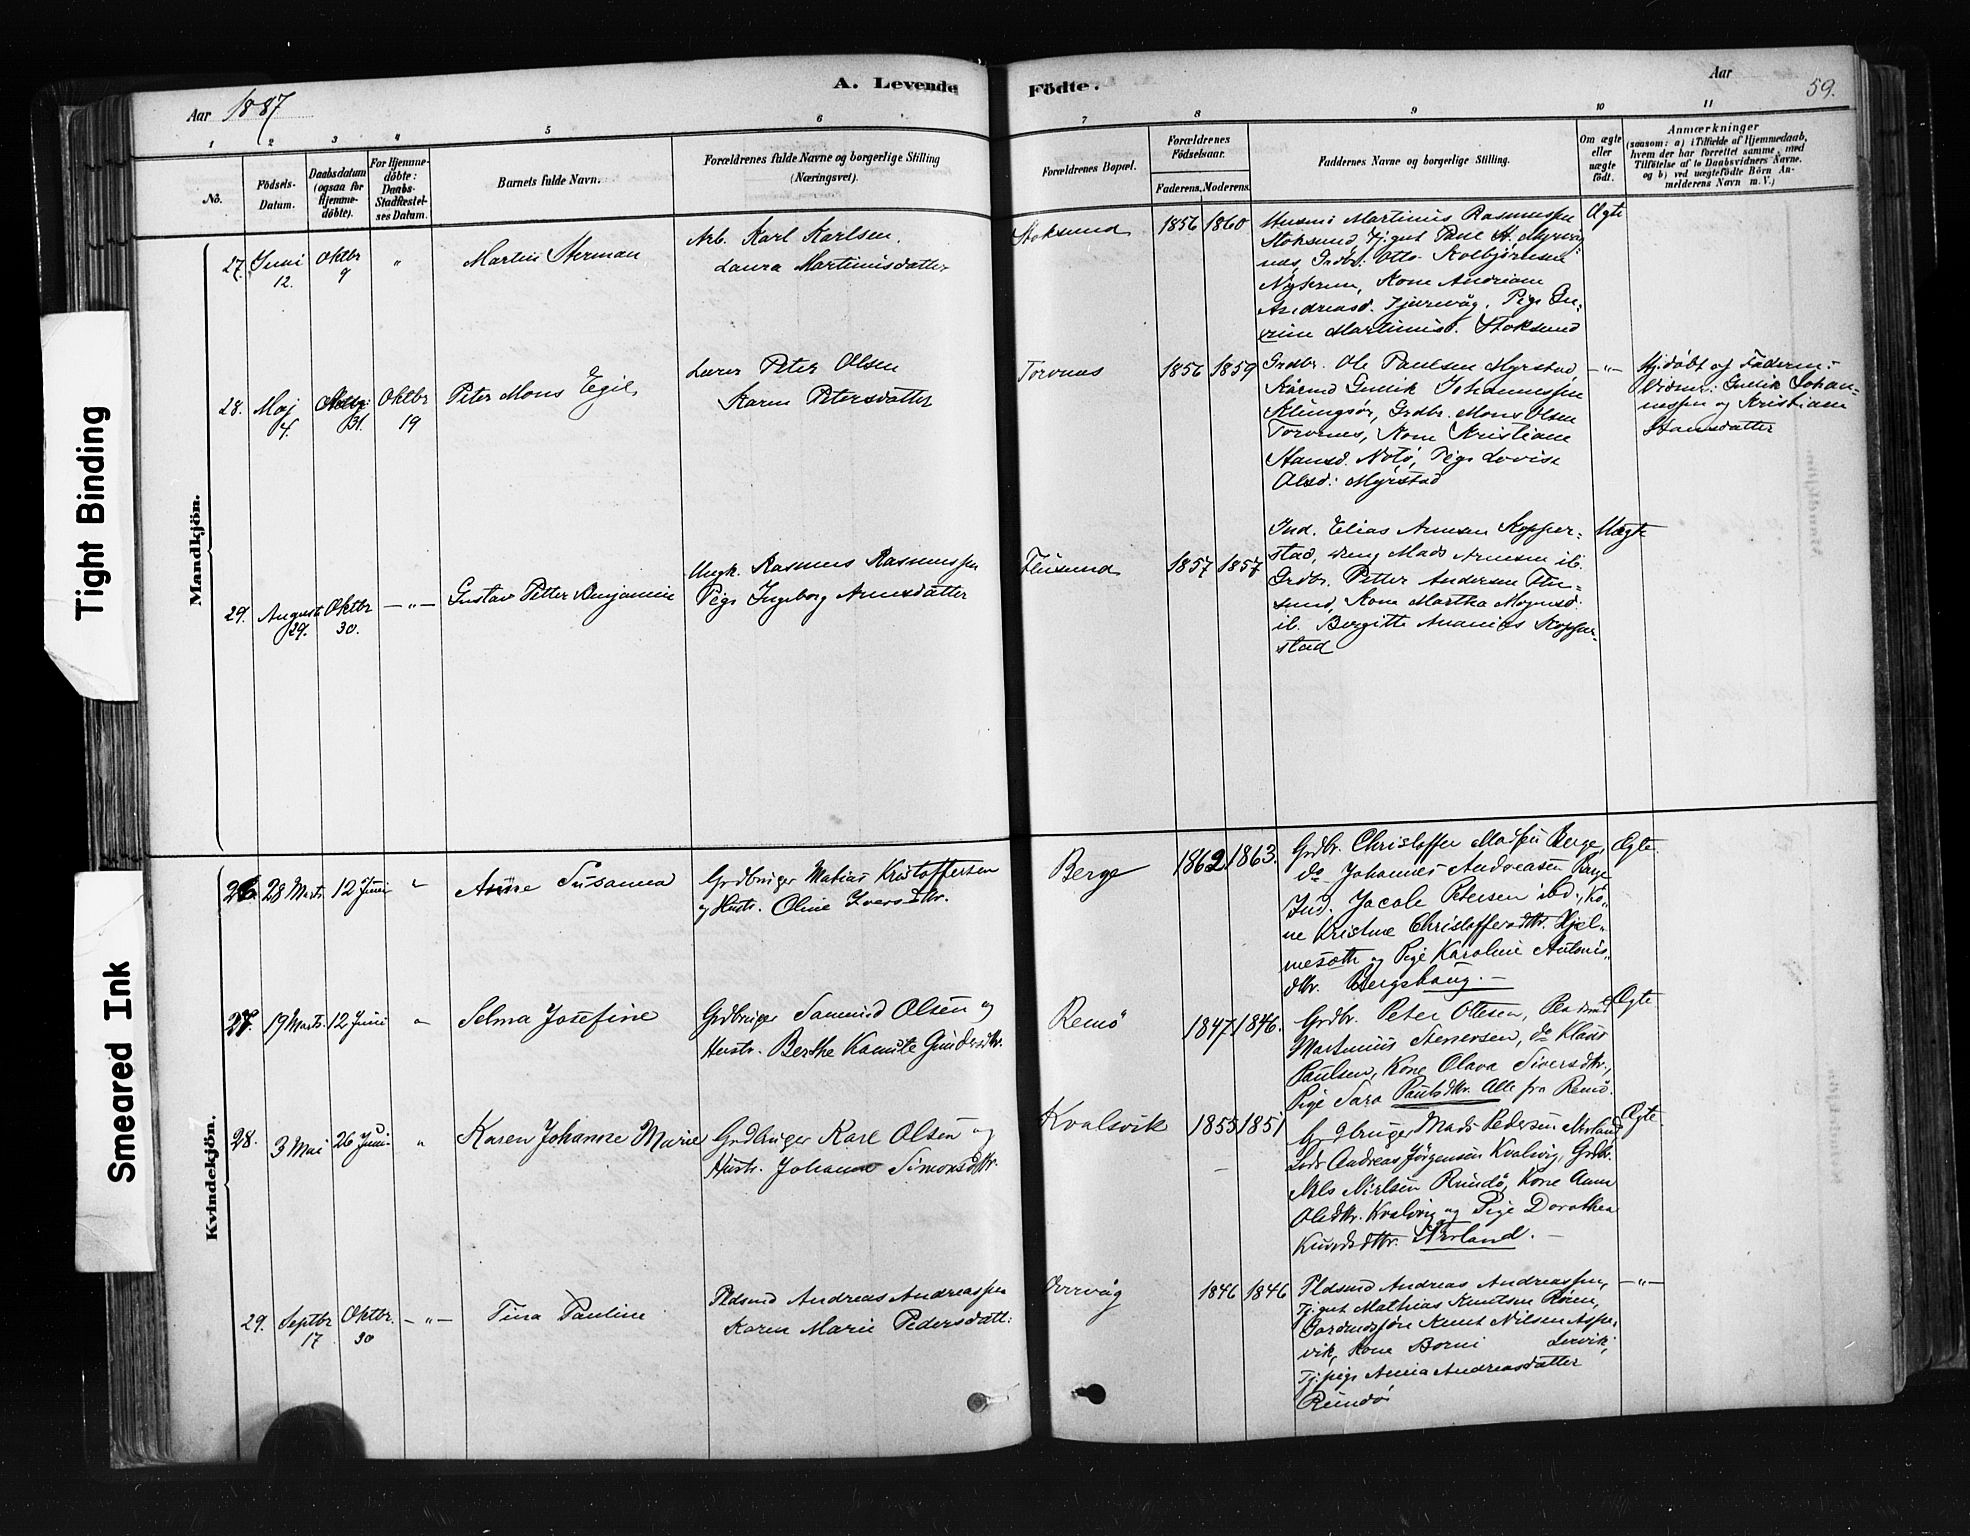 A. Levende Födte.
Aar 1887
Aar
59.
1 2 3 4 5 6 7 8 9 10 11
No.
Födsels-Datum.
Daabsdatum (ogsaa for Hjemme-döbte).
For Hjemme-döbte: Daabs-Stadfæstel-ses Datum.
Barnets fulde Navn.
Forældrenes fulde Navne og borgerlige Stilling (Næringsvei).
Forældrenes Bopæl.
Forældrenes Födselsaar.
Faderens. Moderens.
Faddernes Navne og borgerlige Stilling.
Om ægte eller uægte födt.
Anmærkninger
(saasom: a) i Tilfælde af Hjemmedaab,
hvem der har forrettet samme, med
Tilföielse af to Daabsvidners Navne.
og b) ved uægtefödte Börn An-
melderens Navn m. V.)
Mandkjön.
27. Juni 12. Oktbr 9 "
Martin Herman
Arb. Karl Karlsen,
Laura Martinusdatter
Stoksund 1856 1860
Husm: Martinus Rasmussen
Stoksund, Tj.gut Paul A. Myrvåg
næs, Grdbr. Otto Kolbjörnsen
Kone Andriane
Andreasd. Tjurvåg, Pige
Martinusd. Stoksund
Ægte
28. Maj 4. Oktbr 19
Peter Mons Egil
Lærer Peter Olsen
Karen Petersdatter
Torvnæs 1856 1859
Grdbr. Ole Paulsen Myrstad
Gullik Johannessen
Klungsör, Grdbr. Mons Olsen
Torvnes, Kone Kristiane
Hansd. Notö, Pige Lovise
Olsd: Myrstad
—"—
Hj.døbt af Faderen:
Vidner: Gullik Johan-
nessen og Kristiane
Hansdatter
29. August 29. Oktbr 30. —"—
Gustav Petter Benjamin
Ungk. Rasmus Rasmussen
Pige Ingeborg Arnesdatter
Flusund 1857 1857
Ind. Elias Arnesen Kopper-
stad, dreng Mads Arnesen ib.
Grdbr. Petter Andersen Flu-
sund, Kone Martha Mognsd.
ib. Bergitte Ananias Kopper-
stad
Uægte
Kvindekjön.
26 28 Marts 12 Juni "
Anne Susanna
Grdbruger Matias Kristoffersen
og Hustr. Oline Iversdtr.
Berge 1862 1863.
Grdbr. Christoffer Madsen Berge,
do Johannes Andreasen Berge
Ind. Jacob Petersen ibd., Ko-
ne Kristine Christoffersdtr. Hjel-
mesæth og Pige Karoline Antonis-
dtr. Bergshaug. —
Ægte.
27. 19 Marts. 12 Juni "
Selma Josefine
Grdbruger Sammud Olsen og
Hustr. Berthe Kamile Gundersdtr.
Remö 1847. 1846.
Grdbr. Peter Ottesen,
Martinus Stenersen, do Klaus
Paulsen, Kone Olava Siversdtr.,
Pige Sara Paulsdtr. Alle fra Remö.
Ægte
28. 3 Mai 26 Juni "
Karen Johanne Marie
Grdbruger Karl Olsen og
Hustr. Johanne Simonsdtr.
Kvalsvik 1855 1851
Grdbruger Mads Pedersen Nerland
Andreas Jörgensen Kvalsvig, Grdbr.
Nils Nielsen Rundö, Kone Anne
Olsdtr. Kvalsvig og Pige Dorothea
Knudsdtr. Nerland. —
Ægte
29. Septbr 17 Oktbr. 30 —"—
Tina Pauline
Pldsmd Andreas Andreassen
Karen Marie Pedersdatt:
1846 1846
Pldsmd Andreas Andreassen,
Tj.gut Mathias Knutsen
Knut Nilsen Aspe-
vik, Kone Leevik,
Tj.pige Anna Andreasdatter
Rundö
—"—
Tight Binding
Smeared Ink